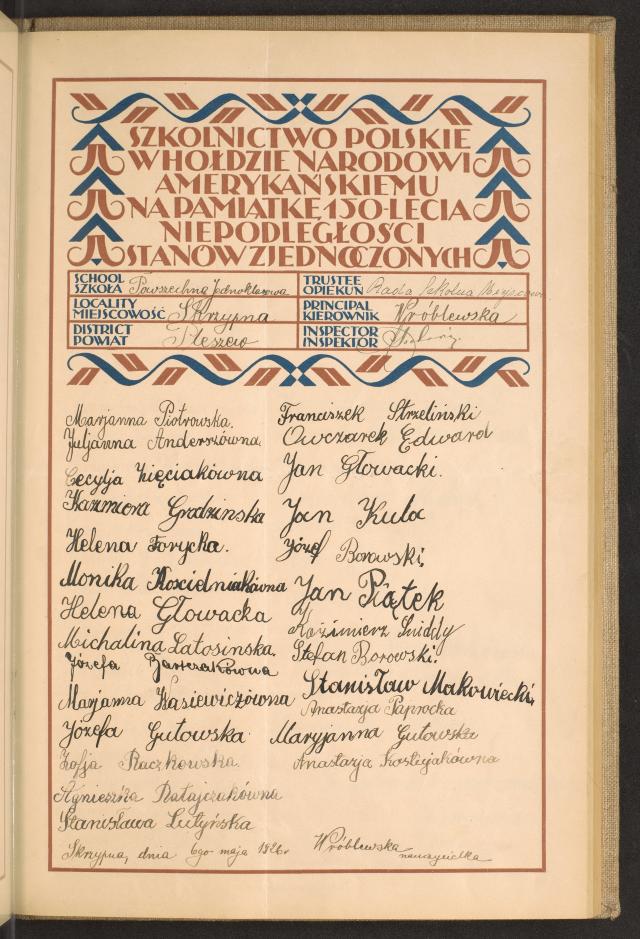 SZKOLNICTWO POLSKIE
W HOŁDZIE NARODOWI
AMERYKAŃSKIEMU
NA PAMIĄTKĘ 150-LECIA
NIEPODLEGŁOŚCI
STANÓW ZJEDNOCZONYCH
SCHOOL
SZKOŁA Powszechna Jednoklasowa
TRUSTEE
OPIEKUN Rada Szkolna Miejscowa
LOCALITY
MIEJSCOWOŚĆ Skrzypna
PRINCIPAL
KIEROWNIK Wróblewska
DISTRICT
POWIAT Pleszew
INSPECTOR
INSPEKTOR
Marjanna Piotrowska.
Juljanna Anderszówna
Cecylja Zięciakówna
Kazimiora Grodzinska
Helena Forycka.
Monika Kościelniakówna
Helena Głowacka
Michalina Latosinska.
Józefa Barczakówna
Marjanna Wasiewiczówna
Józefa Gutowska
Zofja Raczkowska.
Agnieszka Ratajczakówna
Stanisława Lutyńska
Franciszek Strzeliński
Owczarek Edward
Jan Głowacki.
Jan Kula
Józef Borowski.
Jan Piątek
Kazimierz Śniddy
Stefan Borowski.
Stanisław Makowiecki.
Anastazja Paprocka
Maryjanna Gutowska
Anastazja Kostujakówna
Skrzypna, dnia 6go maja 1926r
Wróblewska
nauczycielka